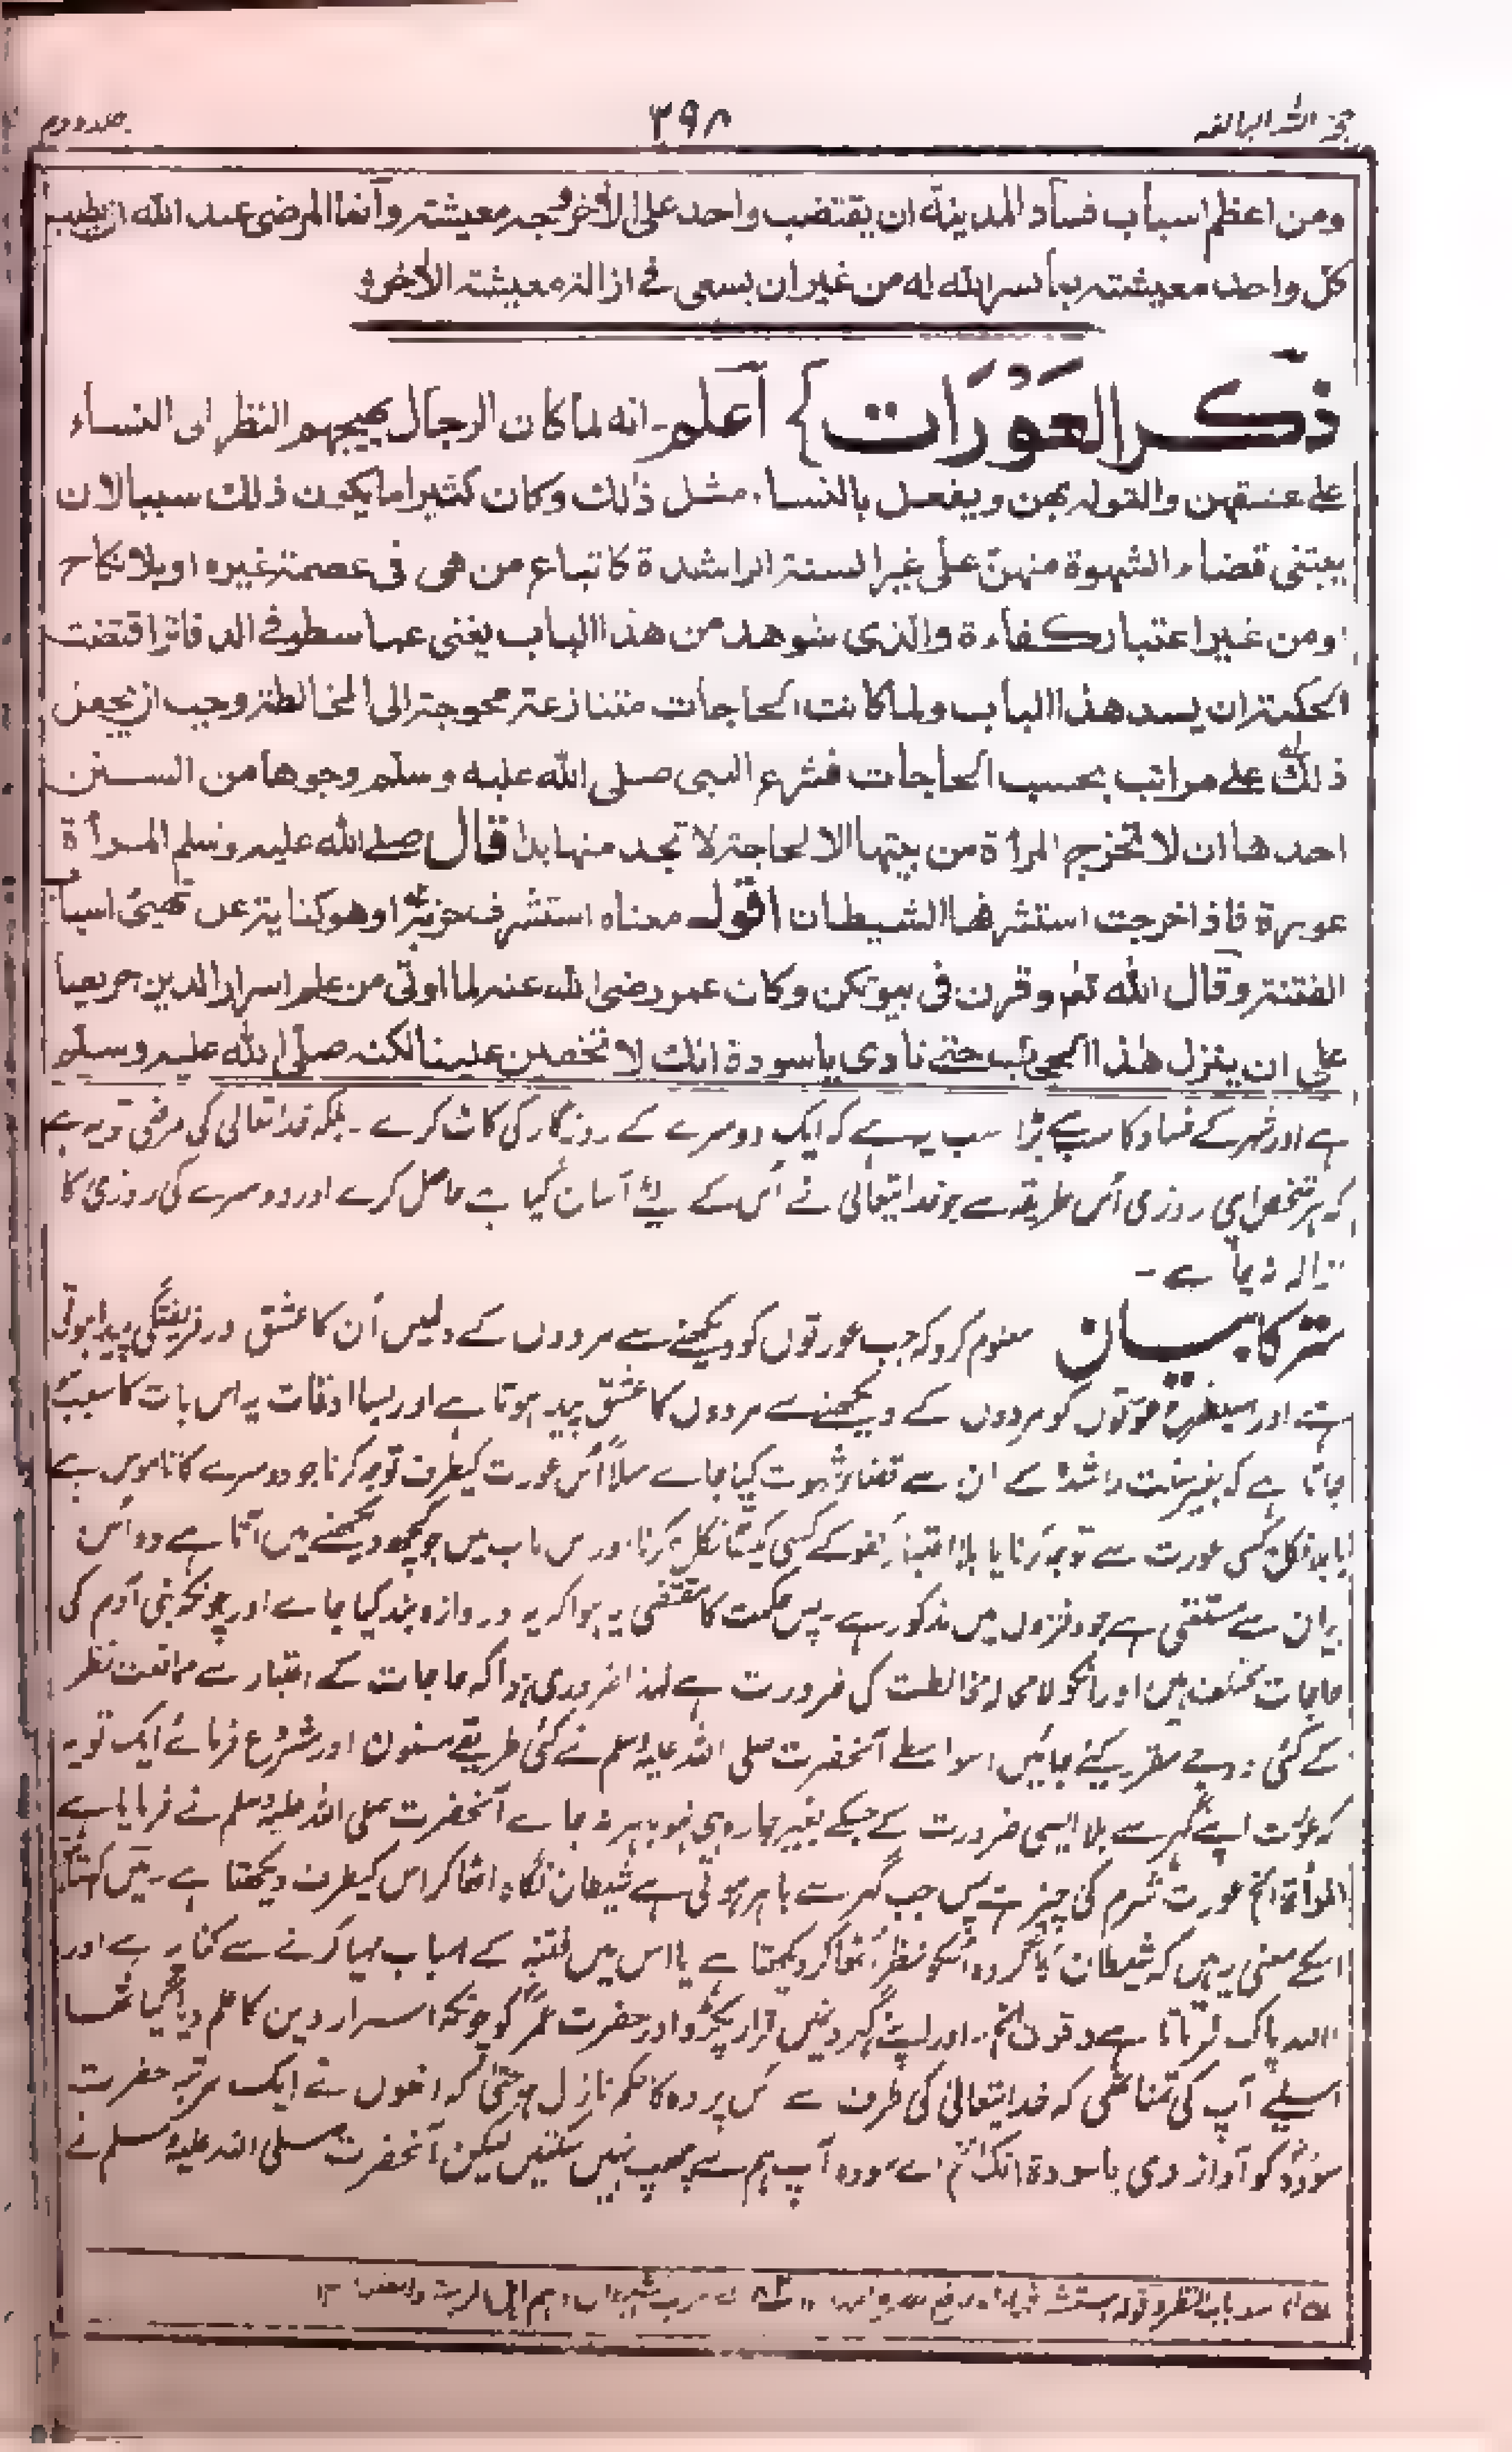 حجۃ اللہ البالغہ
۳۹۸
جلد دوم
ومن اعظم اسباب فساد المدينة ان يقتضب واحد على الأخر وجه معيشته وانما المرضى عند الله ان يطلب
كل واحد معيشته بما يسر الله له من غير ان يسعى فى ازالة معيشة الأخر
ذكر العورات} اعلم۔ انه لما كان الرجال يهيجهم النظر الى النساء
على عشقهن والتوله بهن ويفعل بالنساء مثل ذلك وكان كثيرا ما يكون ذلك سببا لان
يبتغى قضاء الشهوة منهن على غير السنة الراشدة كاتباع من هى فى عصمة غيره او بلا نكاح
او من غير اعتبار كفاءة والذى شوهد من هذا الباب يغنى عما سطر فى الدفاتر اقتضت
الحكمة ان يسد هذا الباب ولما كانت الحاجات متنازعة محوجة الى المخالطة وجب ان يجعل
ذلك على مراتب بحسب الحاجات فشرع النبى صلى الله عليه وسلم وجوها من الستر
احدها ان لا تخرج المرأة من بيتها الا لحاجة لا تجد منها بدا قال صلى الله عليه وسلم المرأة
عورة فاذا خرجت استشرفها الشيطان اقول معناه استشرف حزبه او هو كناية عن تهيئ اسباب
الفتنة وقال الله تعم وقرن فى بيوتكن وكان عمر رضى الله عنه لما اوتى من علم اسرار الدين حريصا
على ان ينزل هذا الحجاب حتى نادى يا سودة انك لا تخفين علينا لكنه صلى الله عليه وسلم
ہے اور شہر کے فساد کا سب سے بڑا سبب یہ ہے کہ ایک دوسرے کے روزگار کی کاٹ کرے۔ بلکہ خدا تعالی کی مرضی تو یہ ہے
کہ ہر شخص اپنی روزی اُس طریقہ سے جو خدا تعالی نے اُس کے لیے آسان کیا ہے حاصل کرے اور دوسرے کی روزی کا
ازالہ نہ چاہے۔
ستر کا بیان معلوم کرو کہ جب عورتوں کو دیکھنے سے مردوں کے دلمیں اُن کا عشق اور فریفتگی پیدا ہوتی
ہے اور اسیطرح عورتوں کو مردوں کے دیکھنے سے مردوں کا عشق پیدا ہوتا ہے اور بسا اوقات یہ اس بات کا سبب
جاتا ہے کہ بغیر سنت راشدہ کے ان سے قضاء شہوت کیا جاے مثلاً اُس عورت کیطرف توجہ کرنا جو دوسرے کا ناموس ہے
یا بلا نکاح کسی عورت سے توجہ کرنا یا بلا اعتبار کفو کے کسی کیساتھ نکاح کرنا اور اس باب میں جو کچھ دیکھنے میں آتا ہے وہ اُس
بیان سے مستغنی ہے جو دفتروں میں مذکور ہے۔ پس حکمت کا مقتضی یہ ہوا کہ یہ دروازہ بند کیا جاے اور چونکہ بنی آدم کی
حاجات مختلف ہیں اور انکو لامحالہ مخالطت کی ضرورت ہے لہذا ضروری ہوا کہ حاجات کے اعتبار سے ممانعت نظر
کے کئی درجے مقرر کیئے جائیں اسواسطے آنحضرت صلی اللہ علیہ وسلم نے کئی طریقے مسنون اور مشروع فرمائے ایک تو یہ
کہ عورت اپنے گھر سے بلا ایسی ضرورت کے جسکے بغیر چارہ ہی نہو باہر نہ جاے آنحضرت صلی اللہ علیہ وسلم نے فرمایا ہے
المرأۃ الخ عورت شرم کی چیز ہے پس جب گھر سے باہر ہوتی ہے شیطان نگاہ اٹھا کر اس کیطرف دیکھتا ہے۔ میں کہتا
اسکے معنی یہ ہیں کہ شیطان کا گروہ اُسکو نظر اُٹھا کر دیکھتا ہے یا اس میں فتنہ کے اسباب مہیا کرنے سے کنایہ ہے اور
اللہ پاک فرماتا ہے وقرن الخ۔ اور اپنے گھروں میں قرار پکڑو اور حضرت عمرؓ کو چونکہ اسرار دین کا علم دیا گیا تھا
اسلیے آپ کی تمنا تھی کہ خدا تعالی کی طرف سے اس پردہ کا حکم نازل ہو حتی کہ انھوں نے ایک مرتبہ حضرت
سودہؓ کو آواز دی یا سودۃ انک الخ اے سودہ آپ ہم سے چھپ نہیں سکتیں لیکن آنحضرت صلی اللہ علیہ وسلم نے